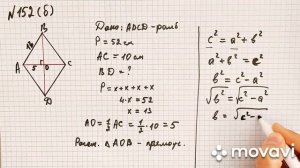 N152(б)
Дано: ABCD - ромб
P = 52 см
AC = 10 см
BD = ?
P = x+x+x+x
4·x = 52
x = 13
AO = 1/2 AC = 1/2 · 10 = 5
AOB - прямоуг.
B
A
C
D
O
c² = a² + b²
a² + b² = c²
b² = c² - a²
√b² = √c² - a²
b = √c² -
movavi